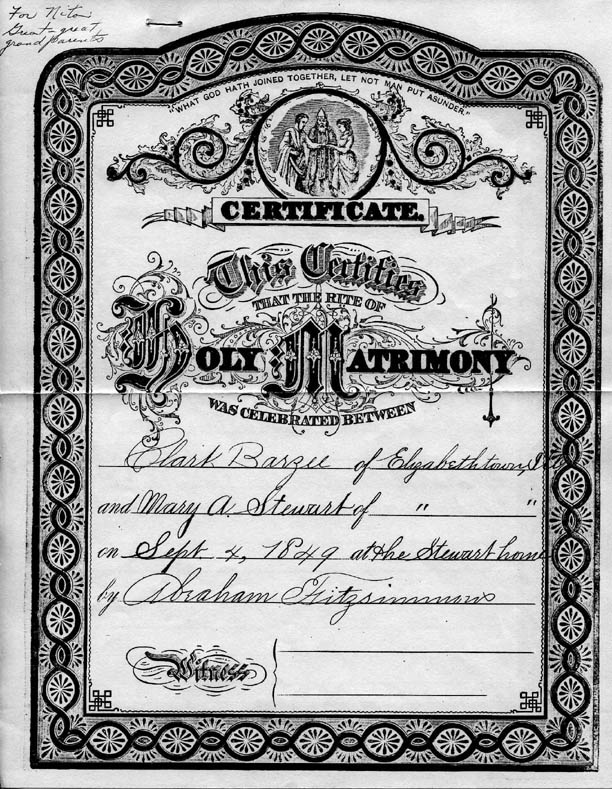 For Nita
Great-great
grandparents
"WHAT GOD HATH JOINED TOGETHER, LET NOT MAN PUT ASUNDER."
CERTIFICATE.
This Certifies
THAT THE RITE OF
HOLY MATRIMONY
WAS CELEBRATED BETWEEN
Clark Barzee of Elizabethtown,
and Mary A. Stewart of " "
on Sept 4, 1849 at the Stewart home
by Abraham Fitzsimmons
Witness